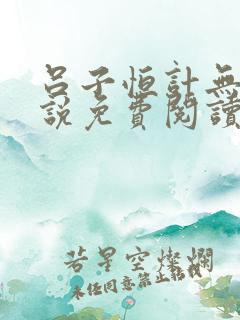 呂子恒計無
說免費閱讀
若星空燦爛
未經同意禁止轉載